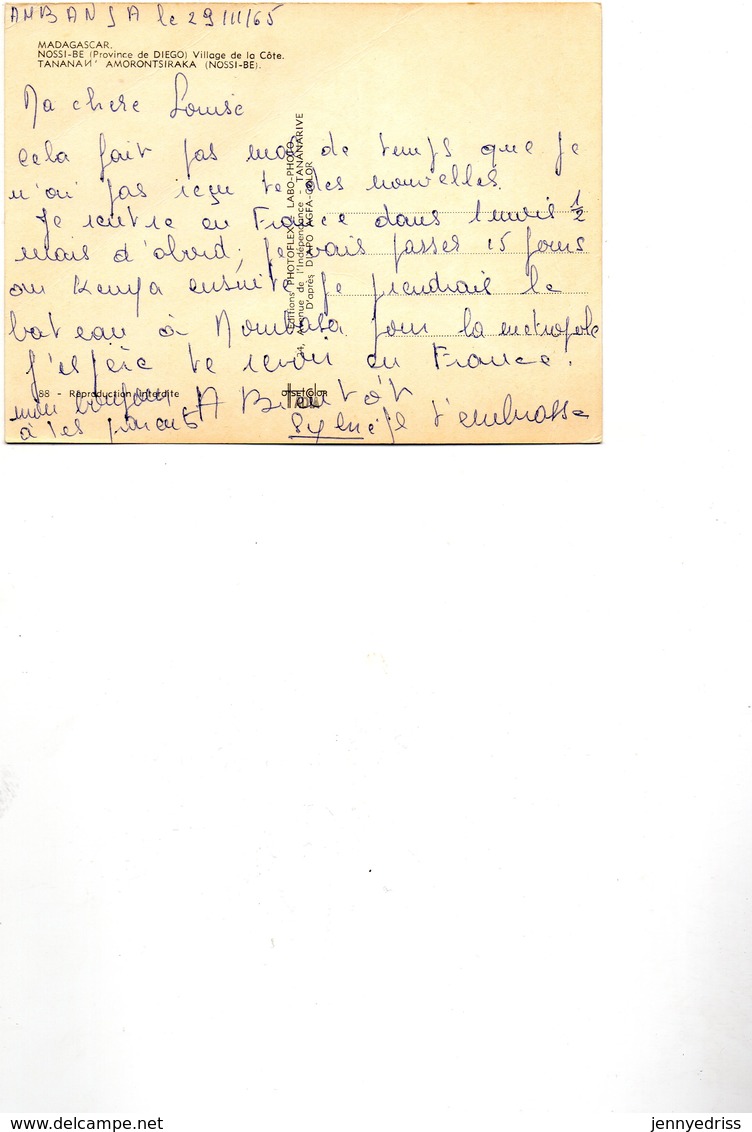 AMBANJA le 29/11/65
MADAGASCAR.
NOSSI-BE (Province de DIEGO) Village de la Côte.
TANANAN' AMORONTSIRAKA (NOSSI-BE).
Ma chere Louise
cela fait pas mal de temps que je
n'ai pas reçu te des nouvelles.
Je rentre en France dans 1 mois 1/2
mais d'abord, je vais passer 15 jours
au Kenya ensuite je prendrais le
bateau à Mombasa pour la metropole
J'espère te revoir en France.
mon bonjour A Bientôt
à tes parents je t'embrasse
Editions PHOTOFLEX - LABO-PHOTO
24, Avenue de l'Indépendance - TANANARIVE
D'après DIAPO AGFA-COLOR
88 - Reproduction interdite
jennyedriss